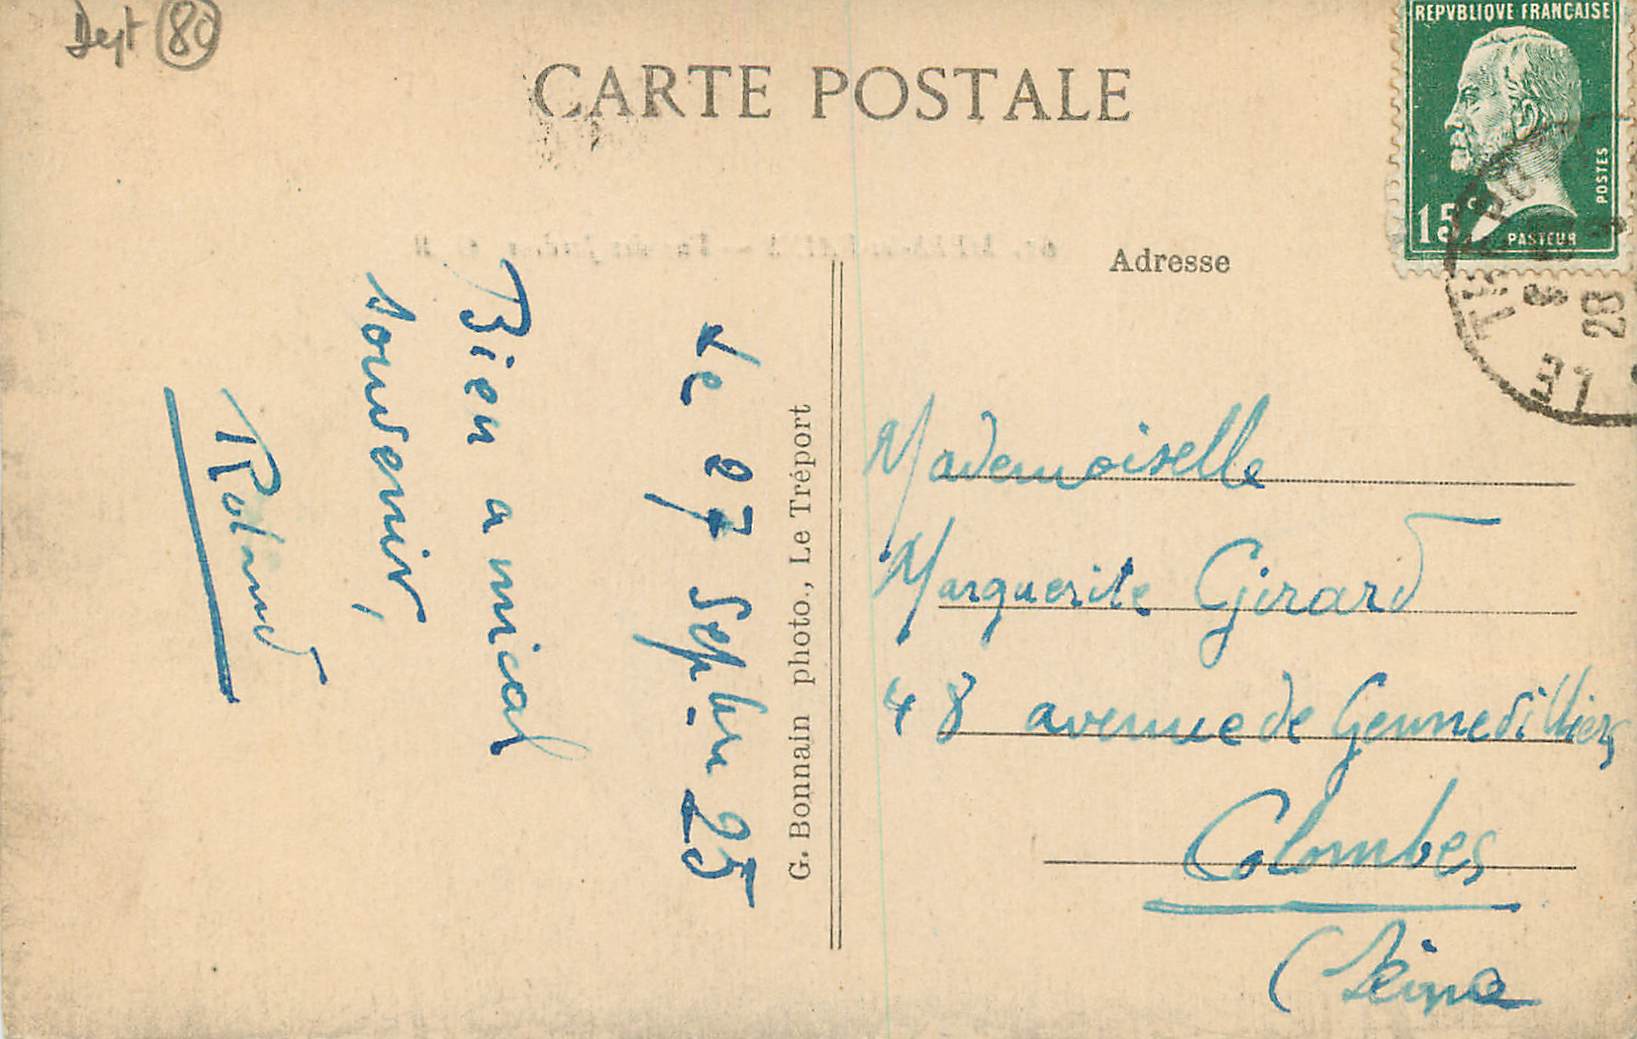 Dept 80
CARTE POSTALE
REPVBLIQVE FRANÇAISE
POSTES
15c
PASTEUR
LE
23
Adresse
le 27 Septbre 25
Bien amical
souvenir,
Roland
G. Bonnain photo., Le Tréport
Mademoiselle
Marguerite Girard
48 avenue de Gennevilliers
Colombes
(Seine